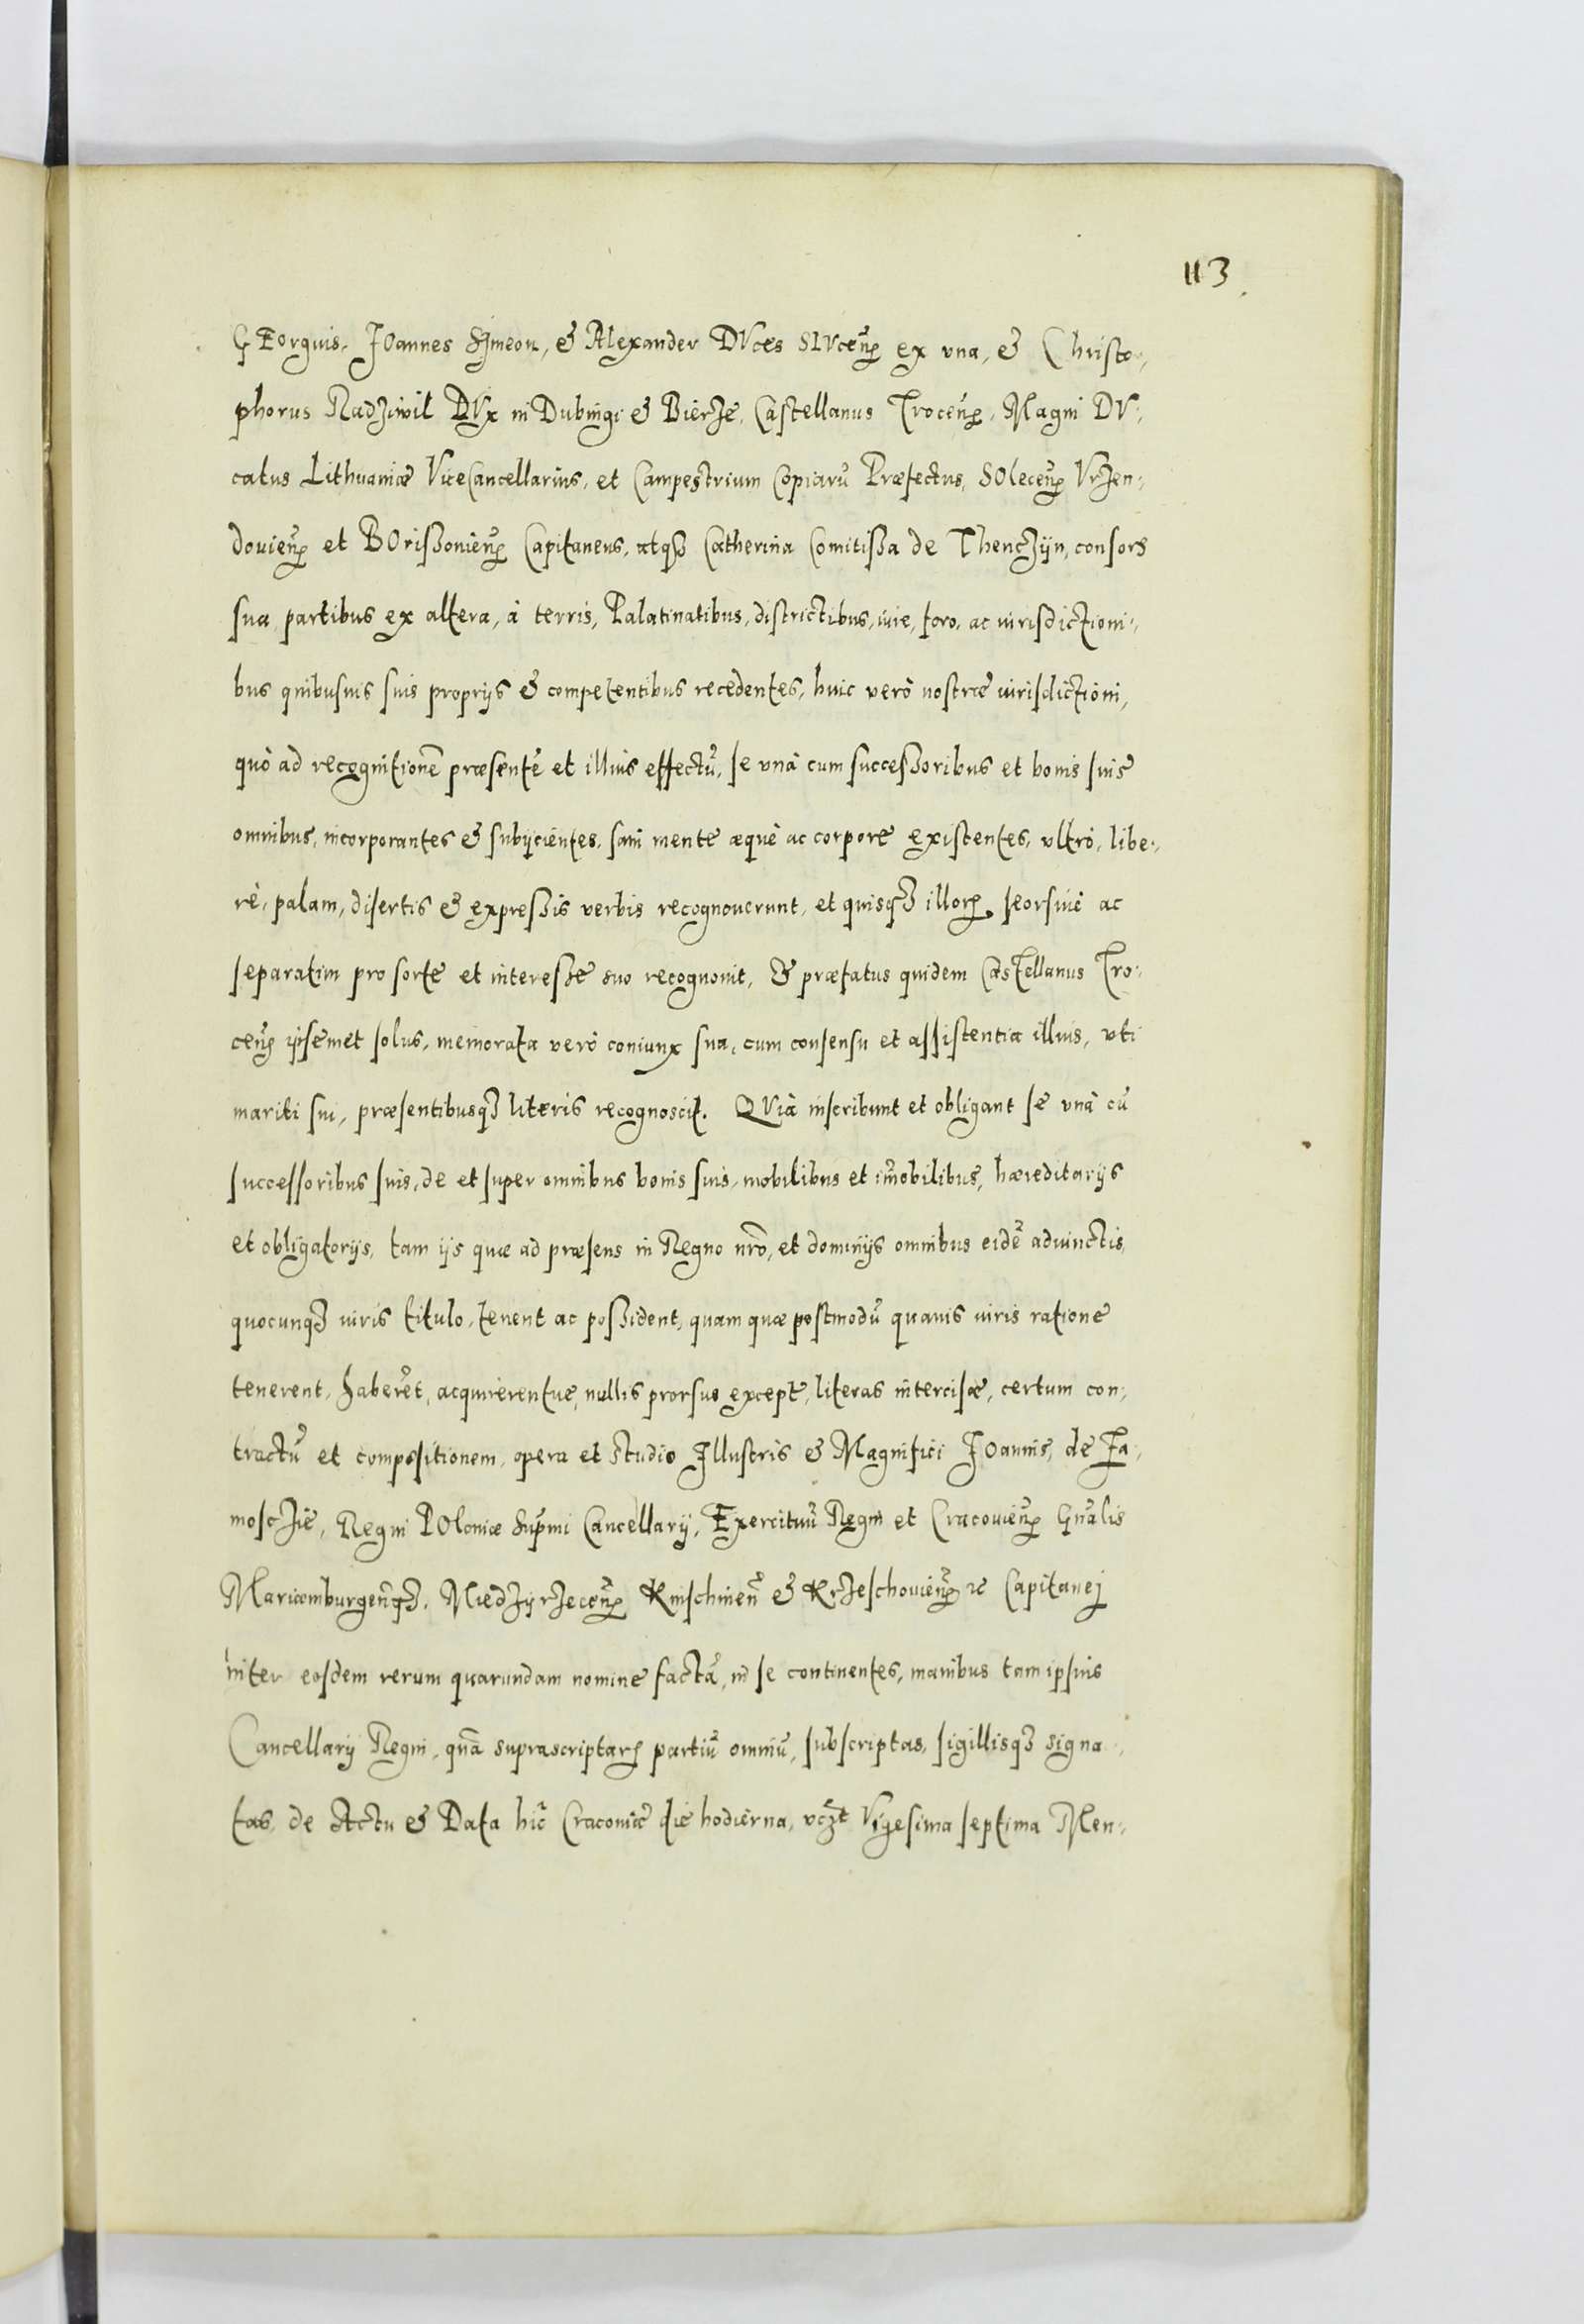 113
GEorgius, JOannes Simeon, & Alexander DVces SLVceñ ex vna, & Christo-,
phorus Radziwil DVx in Dubingi & Bierze, Castellanus Troceñ, Magni DV-,
catus Lithuaniæ ViceCancellarius, et Campestrium Copiarũ Præfectus, SOleceñ Vrzen-,
douieñ et BOrissouieñ Capitaneus, atq3 Catherina Comitissa de Thenczijn, consors
sua, partibus ex altera, à terris, Palatinatibus, districtibus, iure, foro, ac iurisdictioni-,
bus quibusuis suis proprijs & competentibus recedentes, huic verò nostræ iurisdictioni,
quò ad recognitionē præsentē et illius effectũ, se vnà cum successoribus et bonis suis
omnibus, incorporantes & subijcientes, sani mente æquè ac corpore existentes, vltrò, libe-,
rè, palam, disertis & expressis verbis recognouerunt, et quisq3 illorꝝ seorsiuè ac
separatim pro sorte et interesse suo recognouit, & præfatus quidem Castellanus Tro-,
ceñ ipsemet solus, memorata verò coniunx sua, cum consensu et assistentia illius, vti
mariti sui, præsentibusq3 literis recognoscit. QVià inscribunt et obligant se vnà cũ
successoribus suis, de et super omnibus bonis suis, mobilibus et im̃obilibus, hæreditarijs
et obligatorijs, tam ijs quæ ad præsens in Regno nrõ, et dominijs omnibus eidē adiunctis,
quocunq3 iuris titulo, tenent ac possident, quam quæ postmodũ quauis iuris ratione
tenerent, haberēt, acquirerentue, nullis prorsus except, literas intercisæ, certum con-,
tractũ et compositionem, opera et studio Illustris & Magnifici JOannis, de Za-,
mosczie, Regni POloniæ Sup̃mi Cancellarij, Exercituũ Regni et Cracouieñ Gñalis
Mariæmburgeñq3, Miedzyrzeceñ Knischineñ & Krzeschouieñ ꝛc Capitanej
inter eosdem rerum quarundam nomine factã, in se continentes, manibus tam ipsius
Cancellarij Regni, quã suprascriptarꝝ partiũ omniũ, subscriptas, sigillisq3 signa-,
tas, de Actu & Data hic Cracouiæ die hodierna, vcꝫt Vigesima septima Men-,